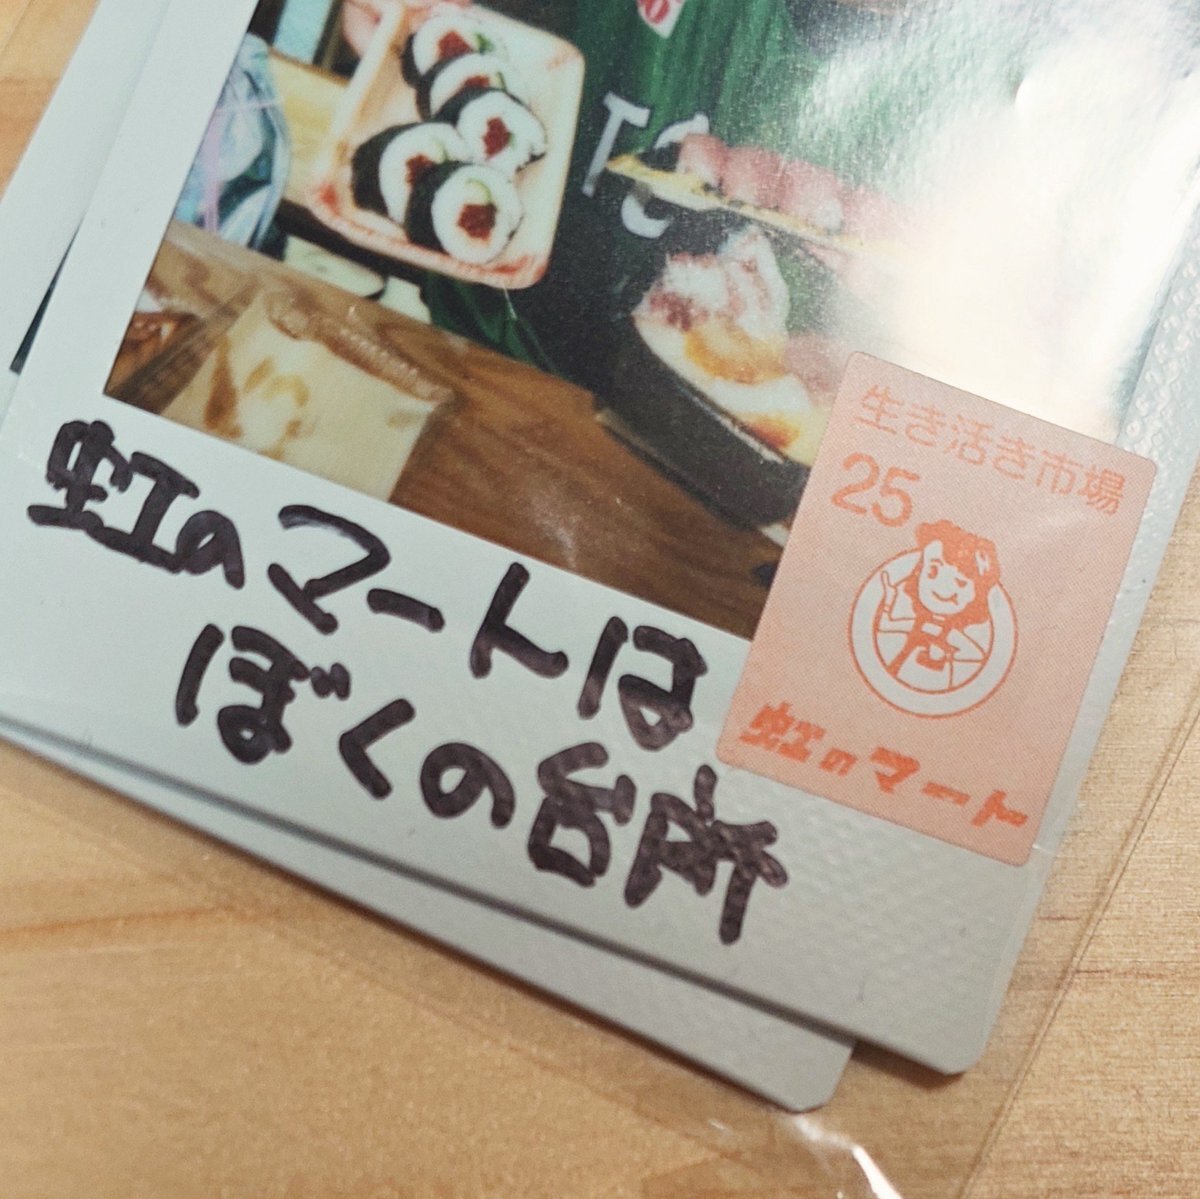 虹のマートは
ぼくの台所
生き活き市場
25
虹のマート